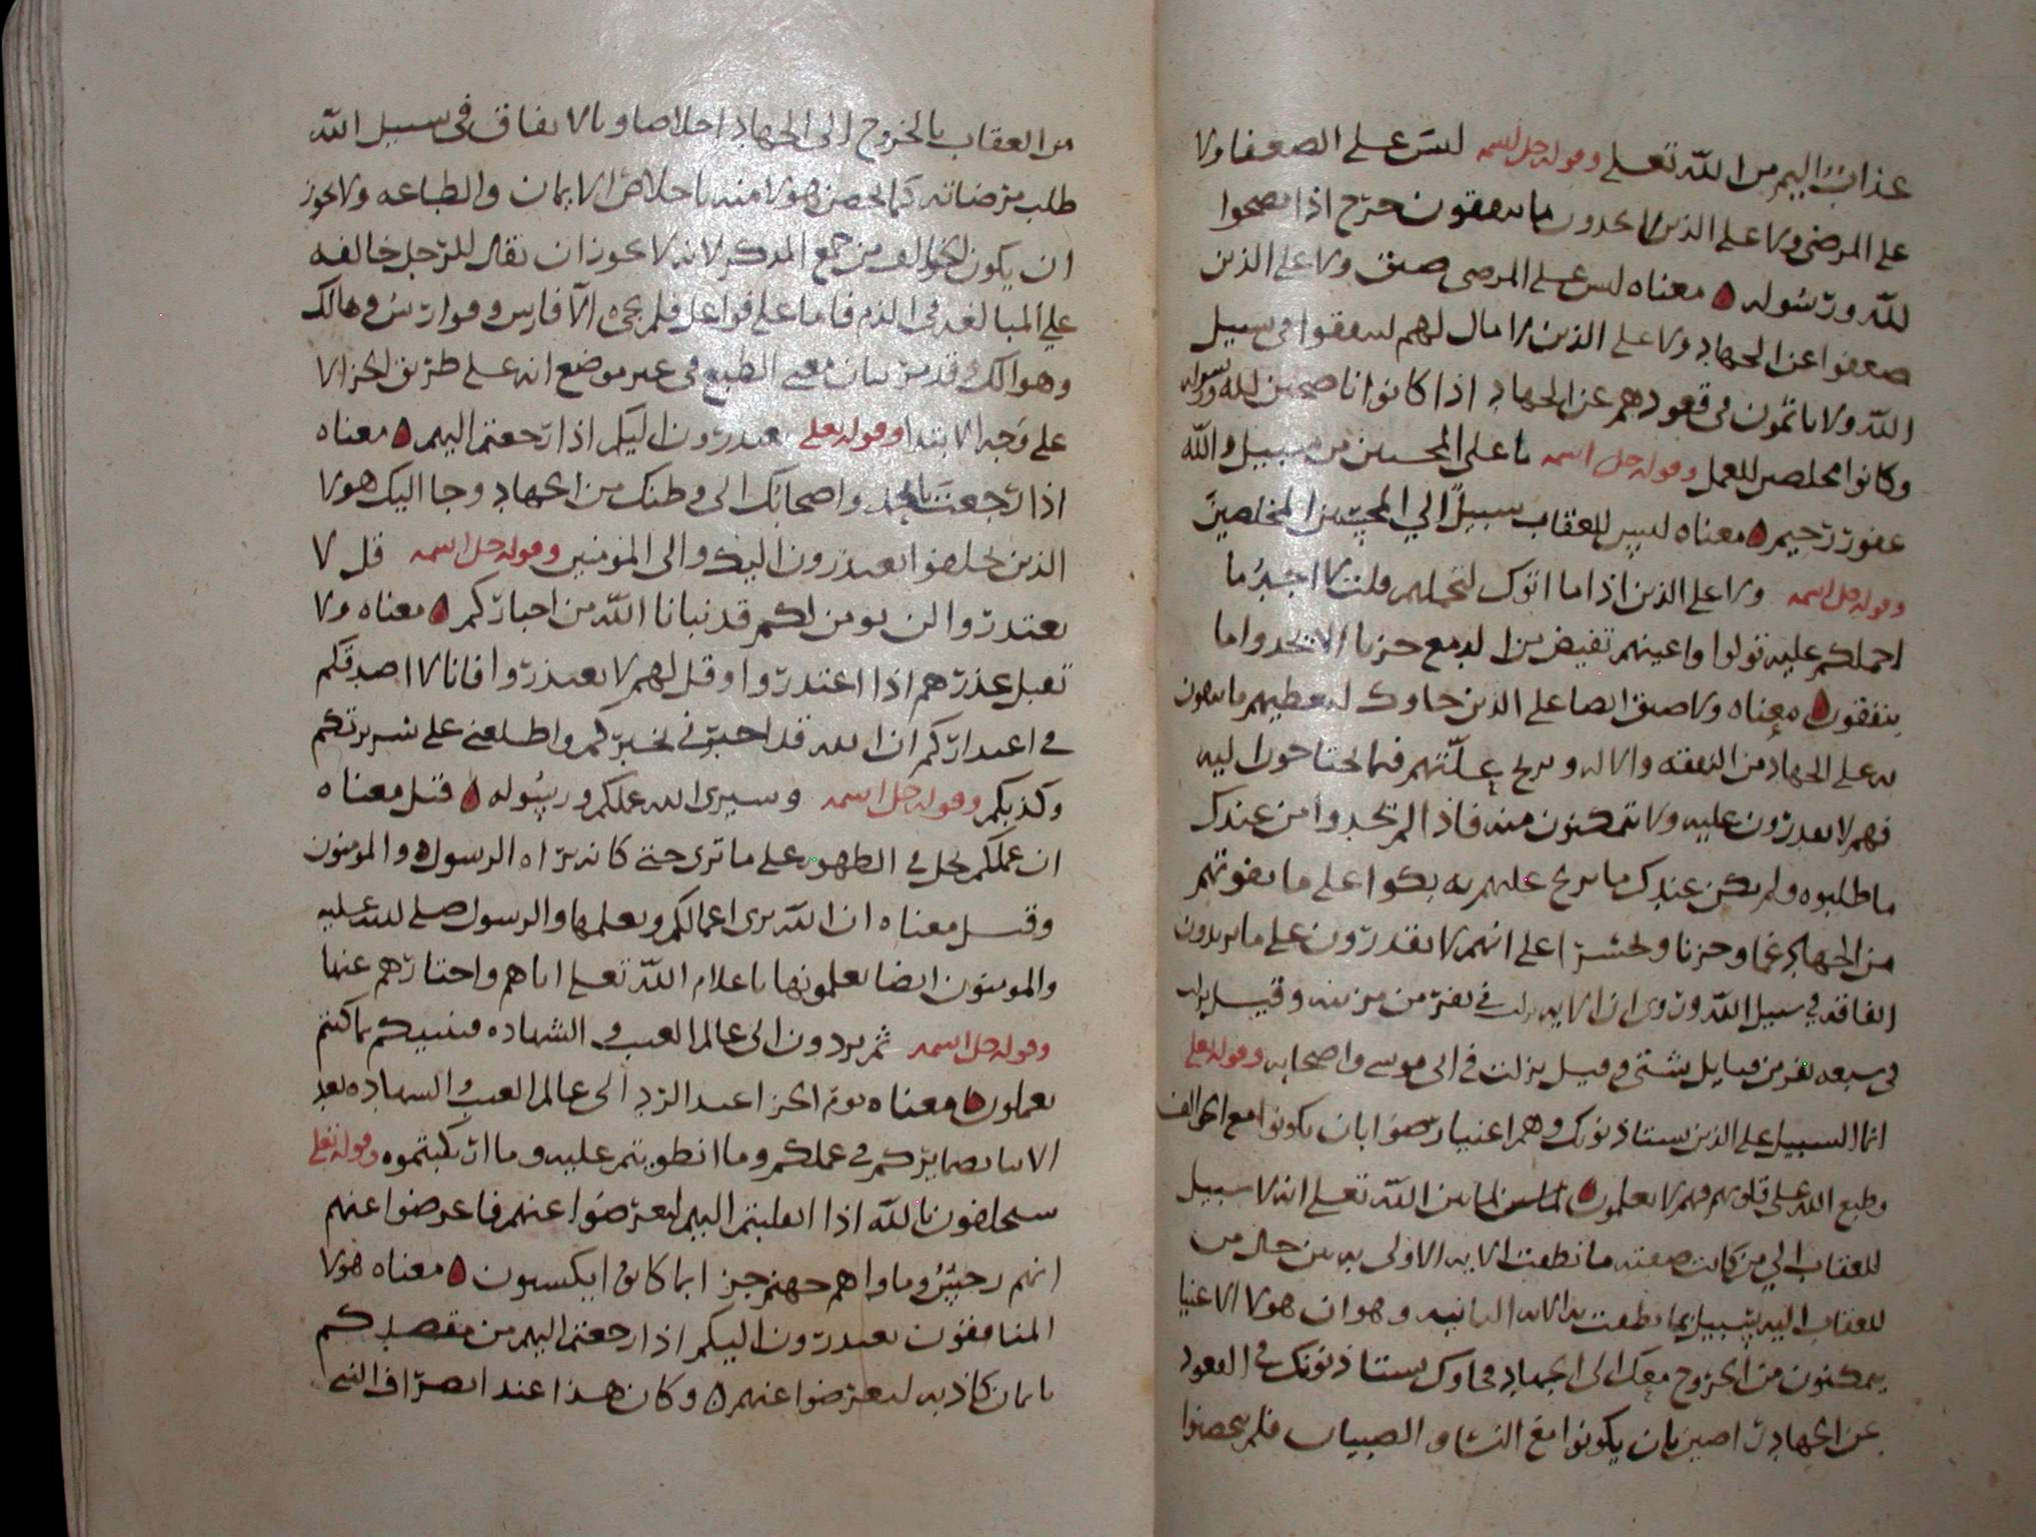 عذاب اليم من الله تعلى وقوله جل اسمه ليس على الضعفا ولا
على المرضى ولا على الذين لا يجدون ما ينفقون حرج اذا نصحوا
لله ورسوله معناه ليس على المرضى ضيق ولا على الذين
ضعفوا عن الجهاد ولا على الذين لا مال لهم لينفقوا في سبيل
الله ولا ياثمون في قعودهم عن الجهاد اذا كانوا ناصحين لله ورسوله
وكانوا مخلصين للعمل وقوله جل اسمه ما على المحسنين من سبيل والله
غفور رحيم معناه ليس للعقاب سبيل الى المحسنين المخلصين
وقوله جل اسمه ولا على الذين اذا ما اتوك لتحملهم قلت لا اجد ما
احملكم عليه تولوا واعينهم تفيض من الدمع حزنا الا يجدوا ما
ينفقون معناه ولا ضيق ايضا على الذين جاوك لتعطيهم ما ينهون
به على الجهاد من النفقه والاله وتزيح علتهم فيما يحتاجون اليه
فهم لا يقدرون عليه ولا يتمكنون منه فاذا لم يجدوا من عندك
ما طلبوه ولم يكن عندك ما تزيح عليهم به بكوا على ما يفوتهم
من الجهاد غما وحزنا وتحسرا على انهم لا يقدرون على ما يريدون
انفاقه في سبيل الله وروى ان الايه نزلت في نفر من مزينه وقيل نزلت
في سبعه نفر من قبايل شتى وقيل نزلت في ابي موسى واصحابه وقوله تعلى
انما السبيل على الذين يستاذنونك وهم اغنيا رضوا بان يكونوا مع الخوالف
وطبع الله على قلوبهم فهم لا يعلمون لما بين الله تعلى انه لا سبيل
للعقاب الى من كانت صفته ما نطقت الايه الاولى به بين حال من
للعقاب اليه سبيل بما نطقت به الايه الثانيه وهو ان هولا الاغنيا
يتمكنون من الخروج معك الى الجهاد فجاوك يستاذنونك في القعود
عن الجهاد راضين بان يكونوا مع النسا والصبيان فلم يحصنوا
من العقاب بالخروج الى الجهاد اخلاصا وبالانفاق في سبيل الله
طلب مرضاته كما تحصن هولا منه باخلاص الايمان والطاعه ولا يجوز
ان يكون الخوالف من جمع المذكر لانه لا يجوز ان يقال للرجل خالفه
على المبالغه في الذم فاما على فواعل فلم يجى الا فارس وفوارس وهالك
وهوالك وقد مر بيان معنى الطبع في غير موضع انه على طريق الجزا لا
على وجه الابتدا وقوله تعلى يعتذرون اليكم اذا رجعتم اليهم معناه
اذا رجعت يا محمد واصحابك الى وطنك من الجهاد وجا اليك هولا
الذين تخلفوا يعتذرون اليك والى المومنين وقوله جل اسمه قل لا
تعتذروا لن نومن لكم قد نبانا الله من اخباركم معناه ولا
تقبل عذرهم اذا اعتذروا وقل لهم لا تعتذروا فانا لا اصدقكم
في اعتذاركم ان الله قد اخبرني بخبركم واطلعني على سريرتكم
وكذبكم وقوله جل اسمه وسيرى الله عملكم ورسوله قيل معناه
ان عملكم يحل في الظهور على ما ترى حتى كانه يراه الرسول والمومنون
وقيل معناه ان الله يرى اعمالكم ويعلمها والرسول صلى الله عليه
والمومنون ايضا يعلمونها باعلام الله تعلى اياهم واختارهم عنها
وقوله جل اسمه ثم تردون الى عالم الغيب والشهاده فينبيكم بما كنتم
تعملون معناه يوم الجزا عند الرد الى عالم الغيب والشهاده يقع
الانبا بضمايركم في عملكم وما انطويتم عليه وما ارتكبتموه وقوله تعلى
سيحلفون بالله اذا انقلبتم اليهم لتعرضوا عنهم فاعرضوا عنهم
انهم رجس وماواهم جهنم جزا بما كانوا يكسبون معناه هولا
المنافقون يعتذرون اليكم اذا رجعتم اليهم من مقصدكم
بايمان كاذبه لتعرضوا عنهم وكان هذا عند انصراف النبي